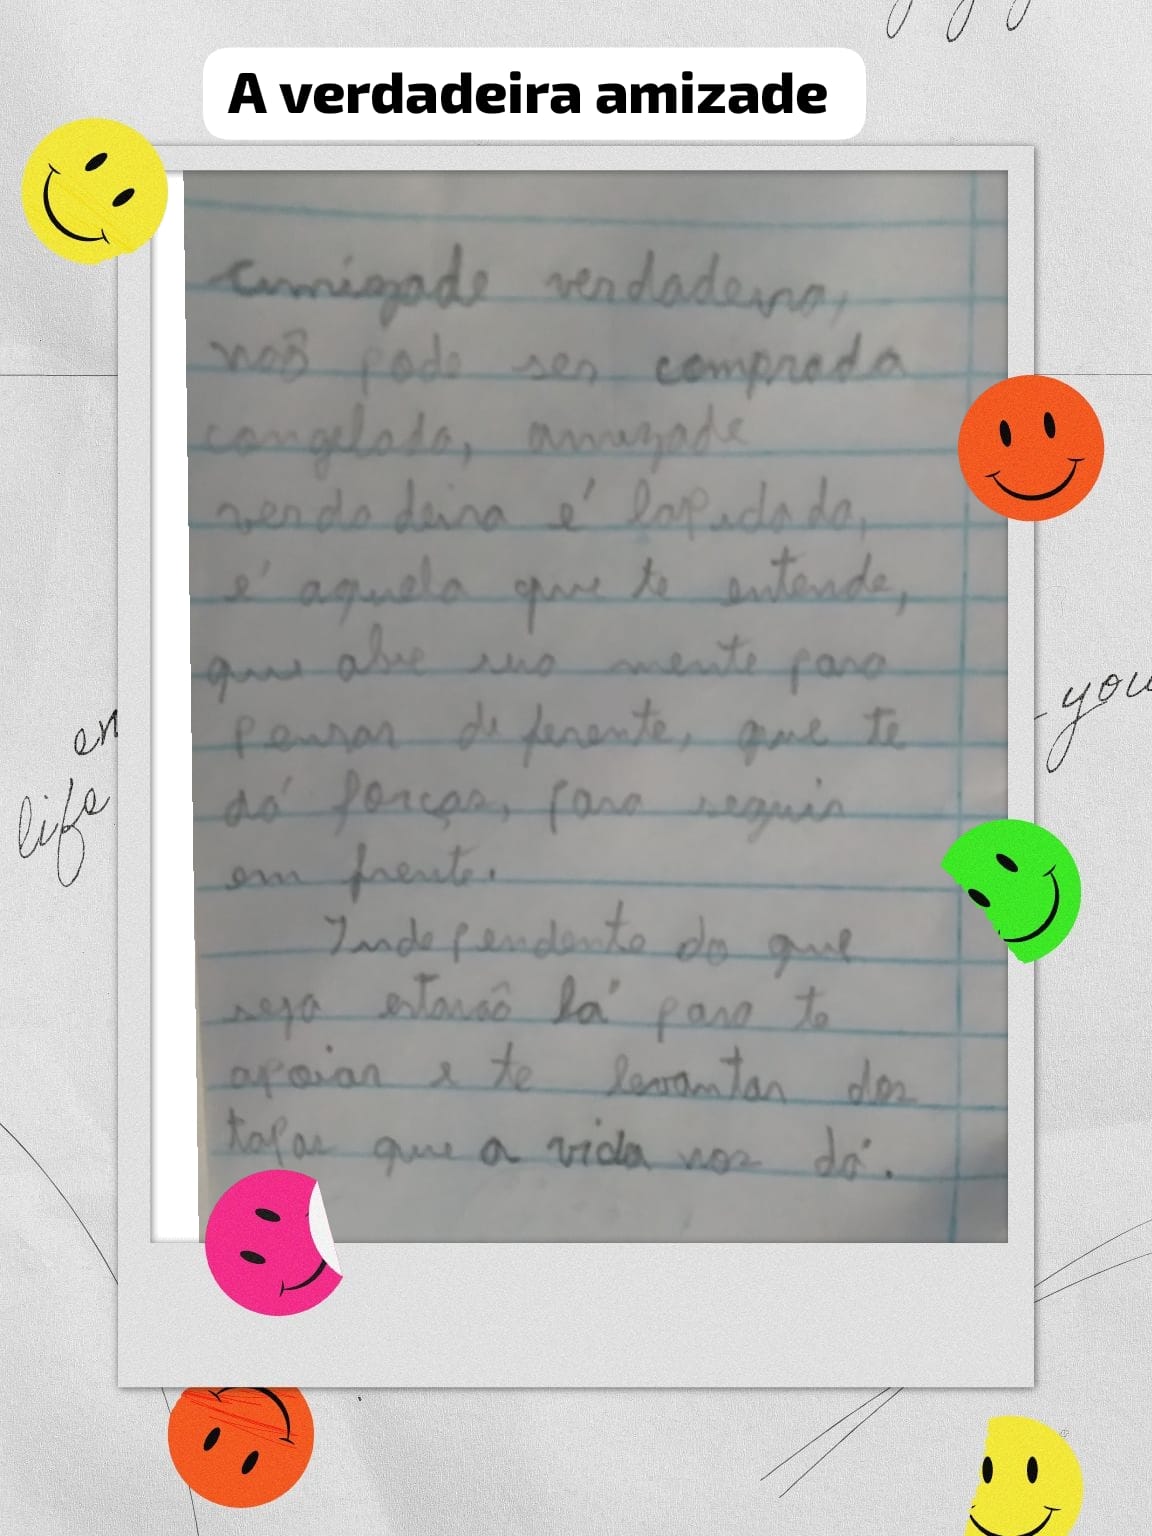 A verdadeira amizade
amizade verdadeira,
naõ pode ser comprada
congelada, amizade
verdadeira é lapidada,
é aquela que te entende,
que abre sua mente para
pensar diferente, que te
dá forças, para seguir
em frente.
Independente do que
seja estaraõ lá para te
apoiar e te levantar dos
tapas que a vida nos dá.
en
life
you